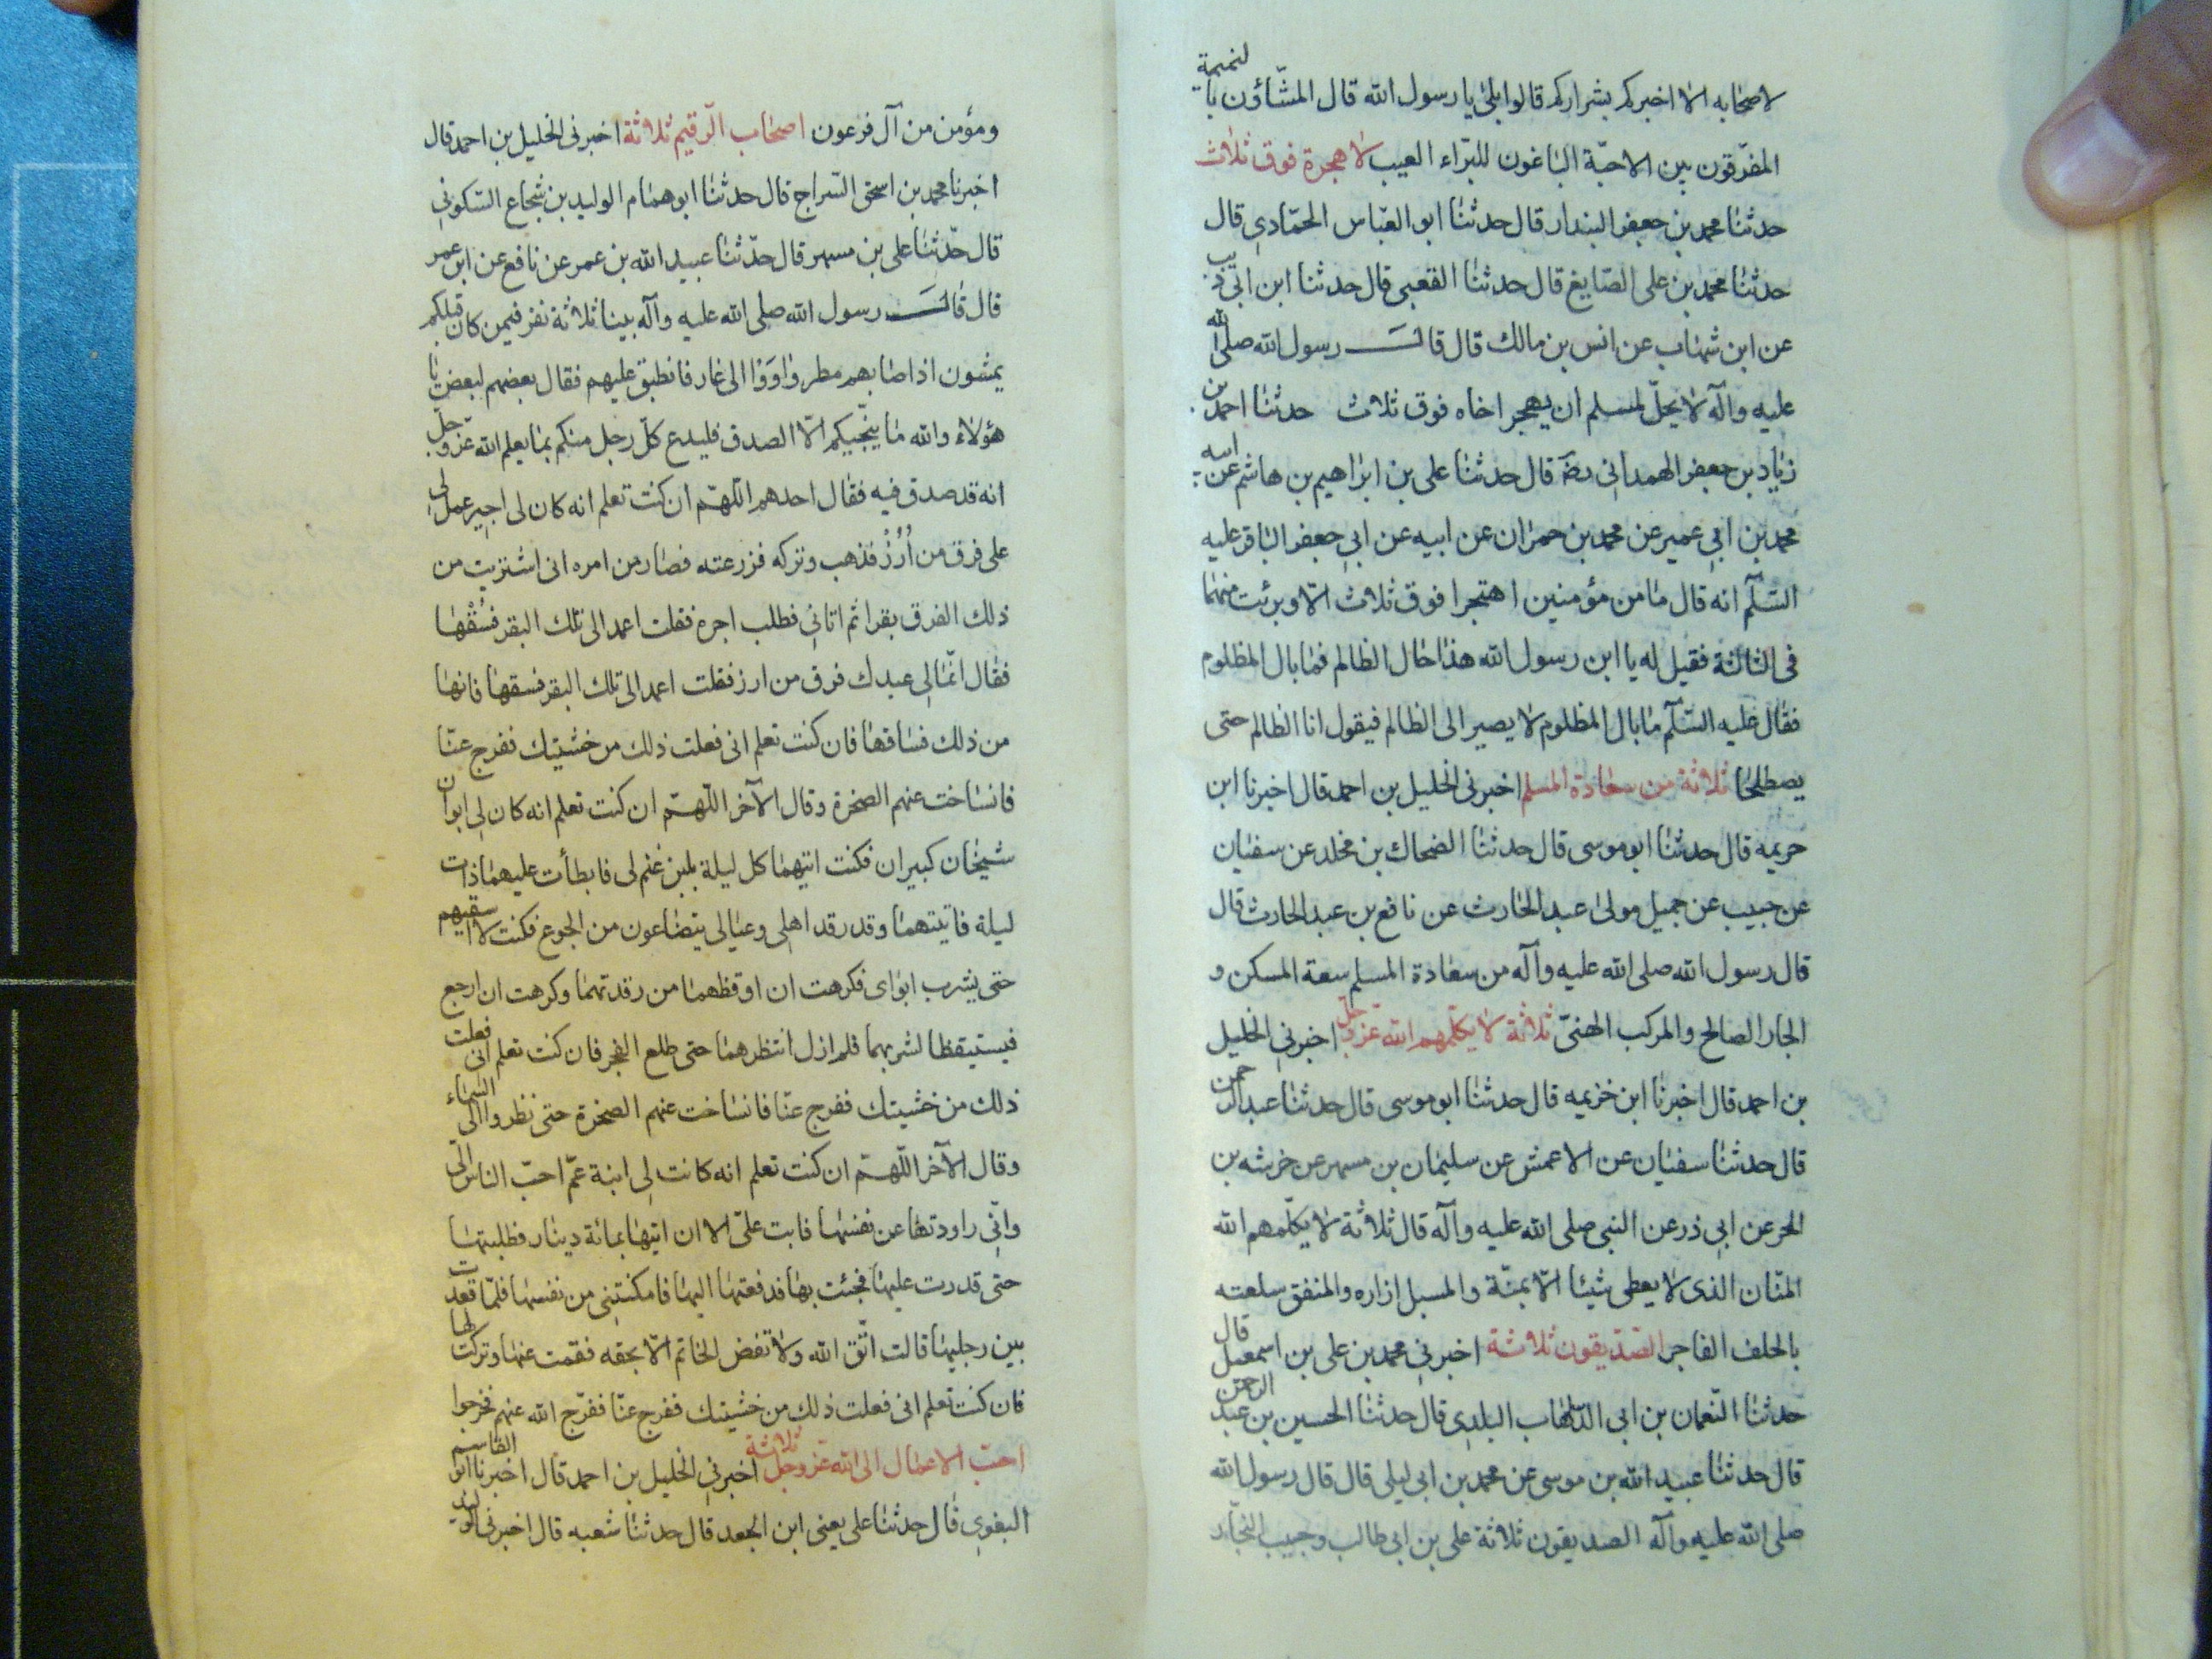 لاصحابه الا اخبركم بشراركم قالوا بلى يا رسول الله قال المشّاؤن بالنميمة
المفرّقون بين الاحبّة الباغون للبرّاء العيب لا هجرة فوق ثلاث
حدثنا محمد بن جعفر البندار قال حدثنا ابو العبّاس الحمّادي قال
حدثنا محمد بن على الصّايغ قال حدثنا القعبى قال حدثنا ابن ابى ذيب
عن ابن شهاب عن انس بن مالك قال قال رسول الله صلى الله
عليه وآله لا يحلّ لمسلم ان يهجر اخاه فوق ثلاث حدثنا احمد بن
زياد بن جعفر الهمدانى رضه قال حدثنا على بن ابراهيم بن هاشم عن ابيه
محمد بن ابى عمير عن محمد بن حمران عن ابيه عن ابى جعفر الباقر عليه
السّلم انه قال ما من مؤمنين اهتجرا فوق ثلاث الّا وبرئت منهما
فى الثالثة فقيل له يا ابن رسول الله هذا حال الظالم فما بال المظلوم
فقال عليه السّلم ما بال المظلوم لا يصير الى الظالم فيقول انا الظالم حتى
يصطلحا ثلاثة من سعادة المسلم اخبرنى الخليل بن احمد قال اخبرنا ابن
خزيمه قال حدثنا ابو موسى قال حدثنا الضحاك بن مخلد عن سفيان
عن حبيب عن جميل مولى عبد الحارث عن نافع بن عبد الحارث قال
قال رسول الله صلى الله عليه وآله من سعادة المسلم سعة المسكن و
الجار الصالح والمركب الهنىّ ثلاثة لا يكلّمهم الله عزّ وجلّ اخبرنى الخليل
بن احمد قال اخبرنا ابن خزيمه قال حدثنا ابو موسى قال حدثنا عبد الرحمن
قال حدثنا سفيان عن الاعمش عن سليمان بن مسهر عن خرشه بن
الحر عن ابى ذر عن النبى صلى الله عليه وآله قال ثلاثة لا يكلّمهم الله
المنّان الذى لا يعطى شيئا الّا بمنّة والمسبل ازاره والمنفق سلعته
بالحلف الفاجر الصّدّيقون ثلاثة اخبرنى محمد بن على بن اسمعيل قال
حدثنا النّعمان بن ابى الدّلهاب البلدى قال حدثنا الحسين بن عبد الرحمن
قال حدثنا عبيد الله بن موسى عن محمد بن ابى ليلى قال قال رسول الله
صلى الله عليه وآله الصديقون ثلاثة على بن ابى طالب وحبيب النجّار
ومؤمن من آل فرعون اصحاب الرّقيم ثلاثة اخبرنى الخليل بن احمد قال
اخبرنا محمد بن اسحق السّراج قال حدثنا ابو همام الوليد بن شجاع السّكونى
قال حدّثنا على بن مسهر قال حدّثنا عبيد الله بن عمر عن نافع عن ابن عمر
قال قال رسول الله صلى الله عليه وآله بينا ثلاثة نفر فيمن كان قبلكم
يمشون اذ اصابهم مطر واووا الى غار فانطبق عليهم فقال بعضهم لبعض يا
هؤلاء والله ما ينجّيكم الّا الصدق فليدع كلّ رجل منكم بما يعلم الله عزّ وجلّ
انه قد صدق فيه فقال احدهم اللّهمّ ان كنت تعلم انه كان لى اجير عمل لى
على فرق من أرُزّ فذهب وتركه فزرعته فصار من امره انى اشتريت من
ذلك الفرق بقرا ثم اتانى فطلب اجره فقلت اعمد الى تلك البقر فسُقْها
فقال انّما لى عبدك فرق من ارز فقلت اعمد الى تلك البقر فسقها فانها
من ذلك فساقها فان كنت تعلم انى فعلت ذلك من خشيتك ففرج عنّا
فانساخت عنهم الصخرة وقال الآخر اللّهمّ ان كنت تعلم انه كان لى ابوان
شيخان كبيران فكنت اتيهما كل ليلة بلبن غنم لى فابطأت عليهما ذات
ليلة فاتيتهما وقد رقد اهلى وعيالى يتضاعون من الجوع فكنت لا اسقيهم
حتى يشرب ابواى فكرهت ان اوقظهما من رقدتهما وكرهت ان ارجع
فيستيقظا لشربهما فلم ازل انتظرهما حتى طلع الفجر فان كنت تعلم انى فعلت
ذلك من خشيتك ففرج عنّا فانساخت عنهم الصخرة حتى نظروا الى السّماء
وقال الآخر اللّهمّ ان كنت تعلم انه كانت لى ابنة عمّ احبّ الناس الىّ
وانّى راودتها عن نفسها فابت علىّ الا ان اتيها بمائة دينار فطلبتها
حتى قدرت عليها فجئت بها فدفعتها اليها فامكنتنى من نفسها فلمّا قعدت
بين رجليها قالت اتّق الله ولا تفض الخاتم الّا بحقه فقمت عنها وتركت لها
فان كنت تعلم انى فعلت ذلك من خشيتك ففرج عنّا ففرّج الله عنهم فخرجوا
احبّ الاعمال الى الله عزّ وجلّ ثلاثة اخبرنى الخليل بن احمد قال اخبرنا ابو القاسم
البغوى قال حدثنا على يعنى ابن الجعد قال حدثنا شعبه قال اخبرنى الوليد